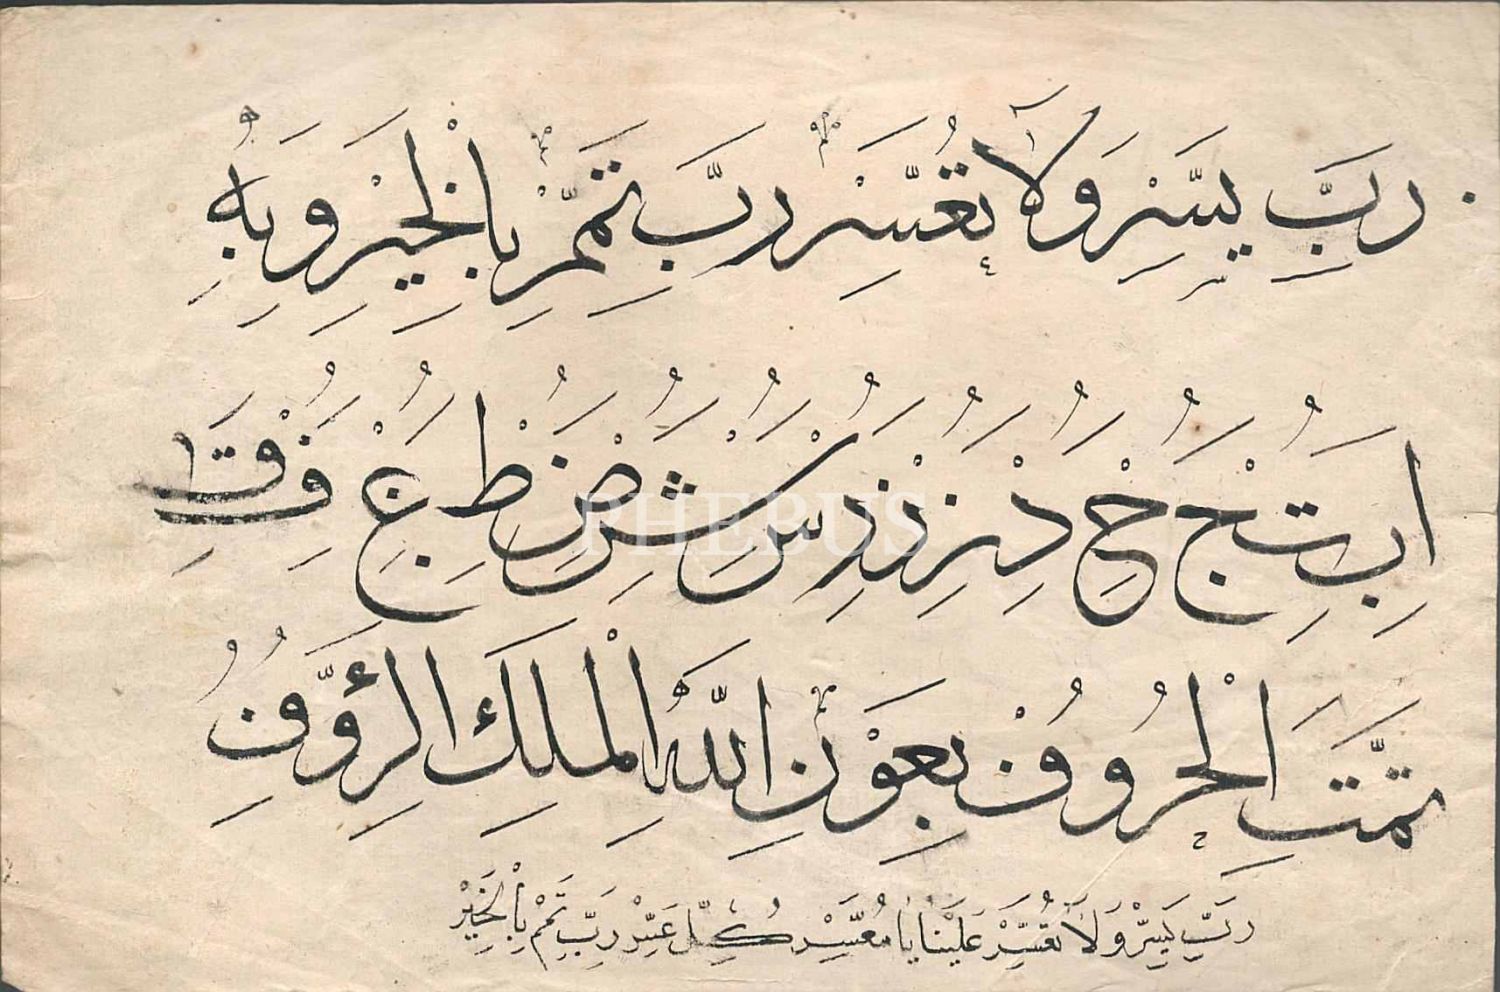 رَبِّ يَسِّرْ وَلَا تُعَسِّرْ رَبِّ تَمِّمْ بِالْخَيْرِ وَبِهِ
ا ب ت ج ح د ر ز س ش ض ظ غ ف ق
تَمَّتِ الْحُرُوفُ بِعَوْنِ اللّٰهِ الْمَلِكِ الرَّؤُفِ
رَبِّ يَسِّرْ وَلَا تُعَسِّرْ عَلَيْنَا يَا كُلِّ رَبِّ تَمِّمْ بِالْخَيْرِ
PHEBUS